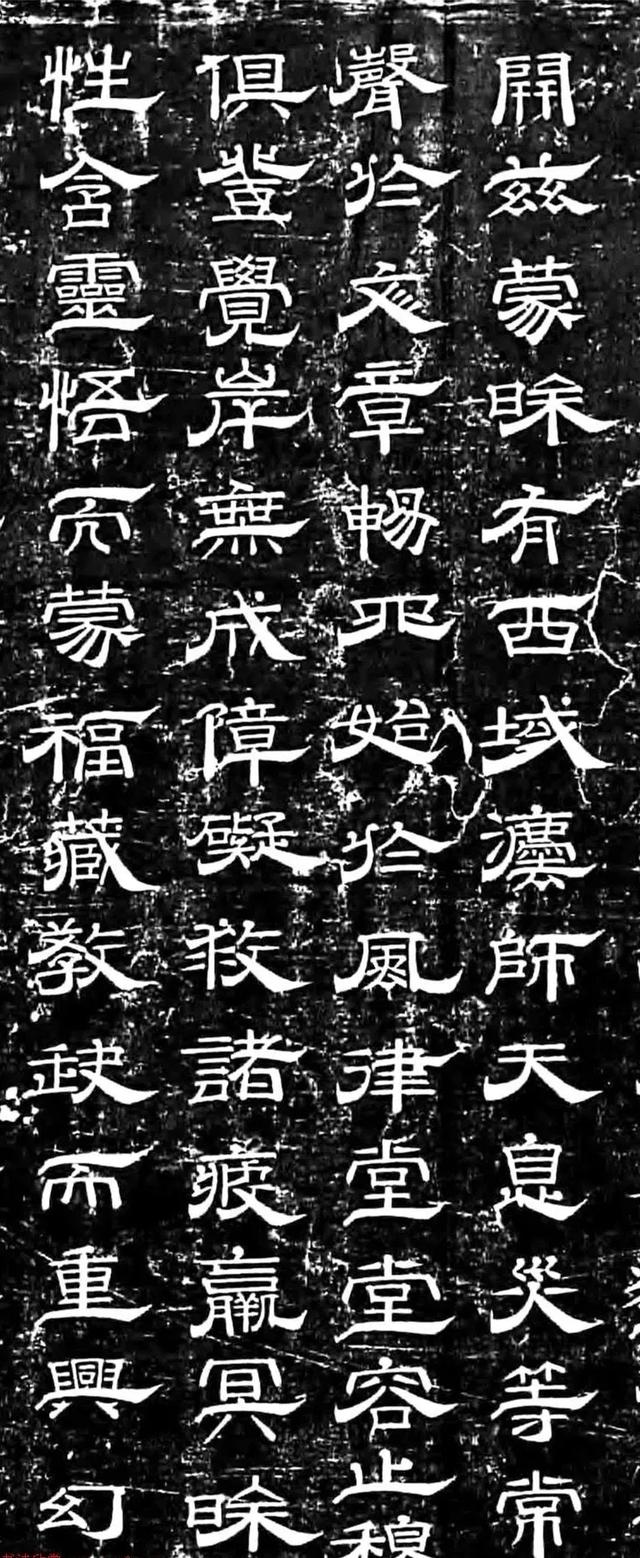 開茲蒙昧有西域灋師天息災等常
聲於彣章暢四始於風律堂堂容止穆
俱登覺岸無成障礙救諸疲羸冥昧
性含靈悟而蒙福藏教缺而重興幻